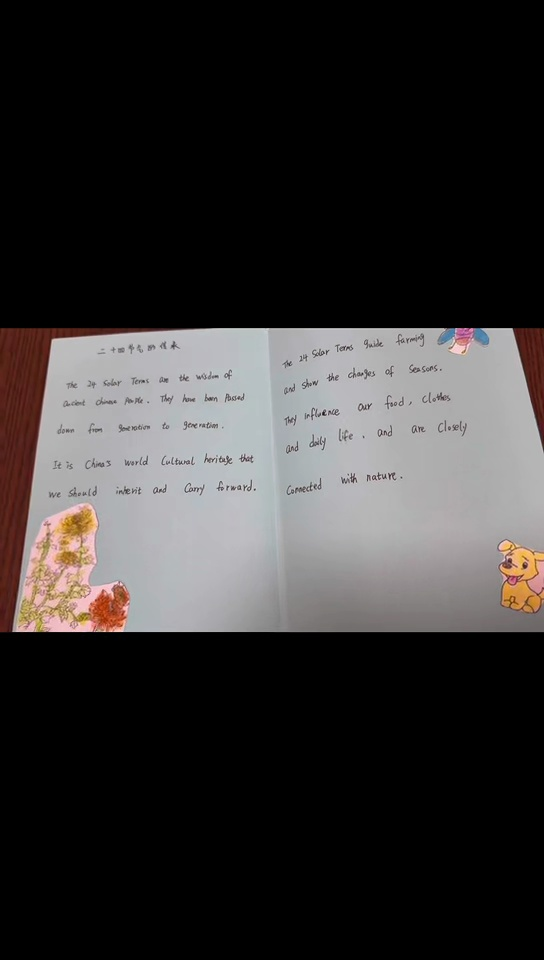 二十四节气的传承
The 24 Solar Terms are the wisdom of
ancient Chinese People. They have been Passed
down from generation to generation.
It is China's world Cultural heritage that
we should inherit and Carry forward.
The 24 Solar Terms guide farming
and show the changes of Seasons.
They influence our food, Clothes
and daily life, and are Closely
Connected with nature.